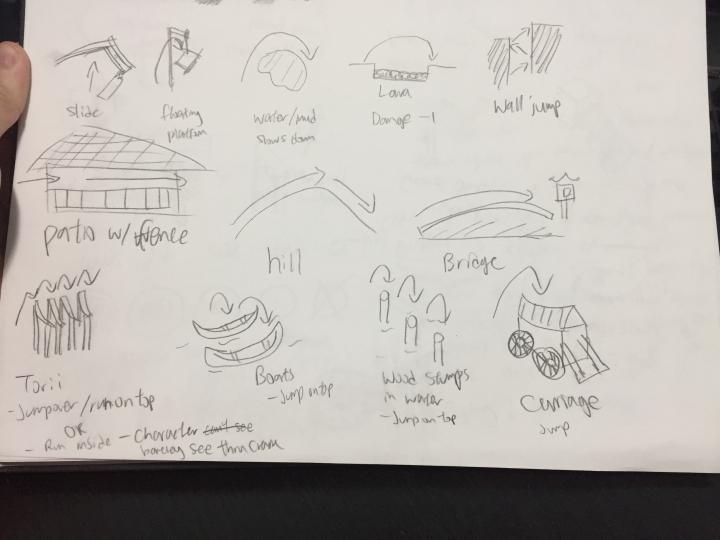 slide
floating
platform
water/mud
slows down
Lava
Damage -1
Wall jump
patio w/ fence
hill
Bridge
Torii
- Jump over / run on top
OR
- Run inside - Character can't see
see thru
Boats
- Jump on top
Wood stumps
in water
- Jump on top
Carriage
Jump